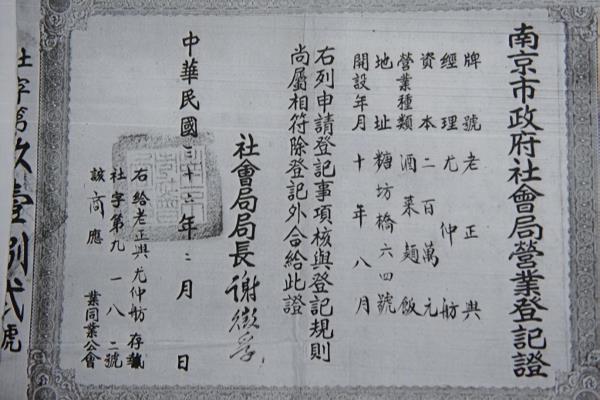 南京市政府社會局營業登記證
牌號老正興
經理尤仲舫
資本二百萬元
營業種類酒菜麵飯
地址糖坊橋六四號
開設年月十年八月
右列申請登記事項核與登記規則
尚屬相符除登記外合給此證
社會局局長謝徵孚
中華民國三十六年二月 日
右給老正興尤仲舫存執
社字第九一八二號
該商應 業同業公會
社字第玖壹捌貳號